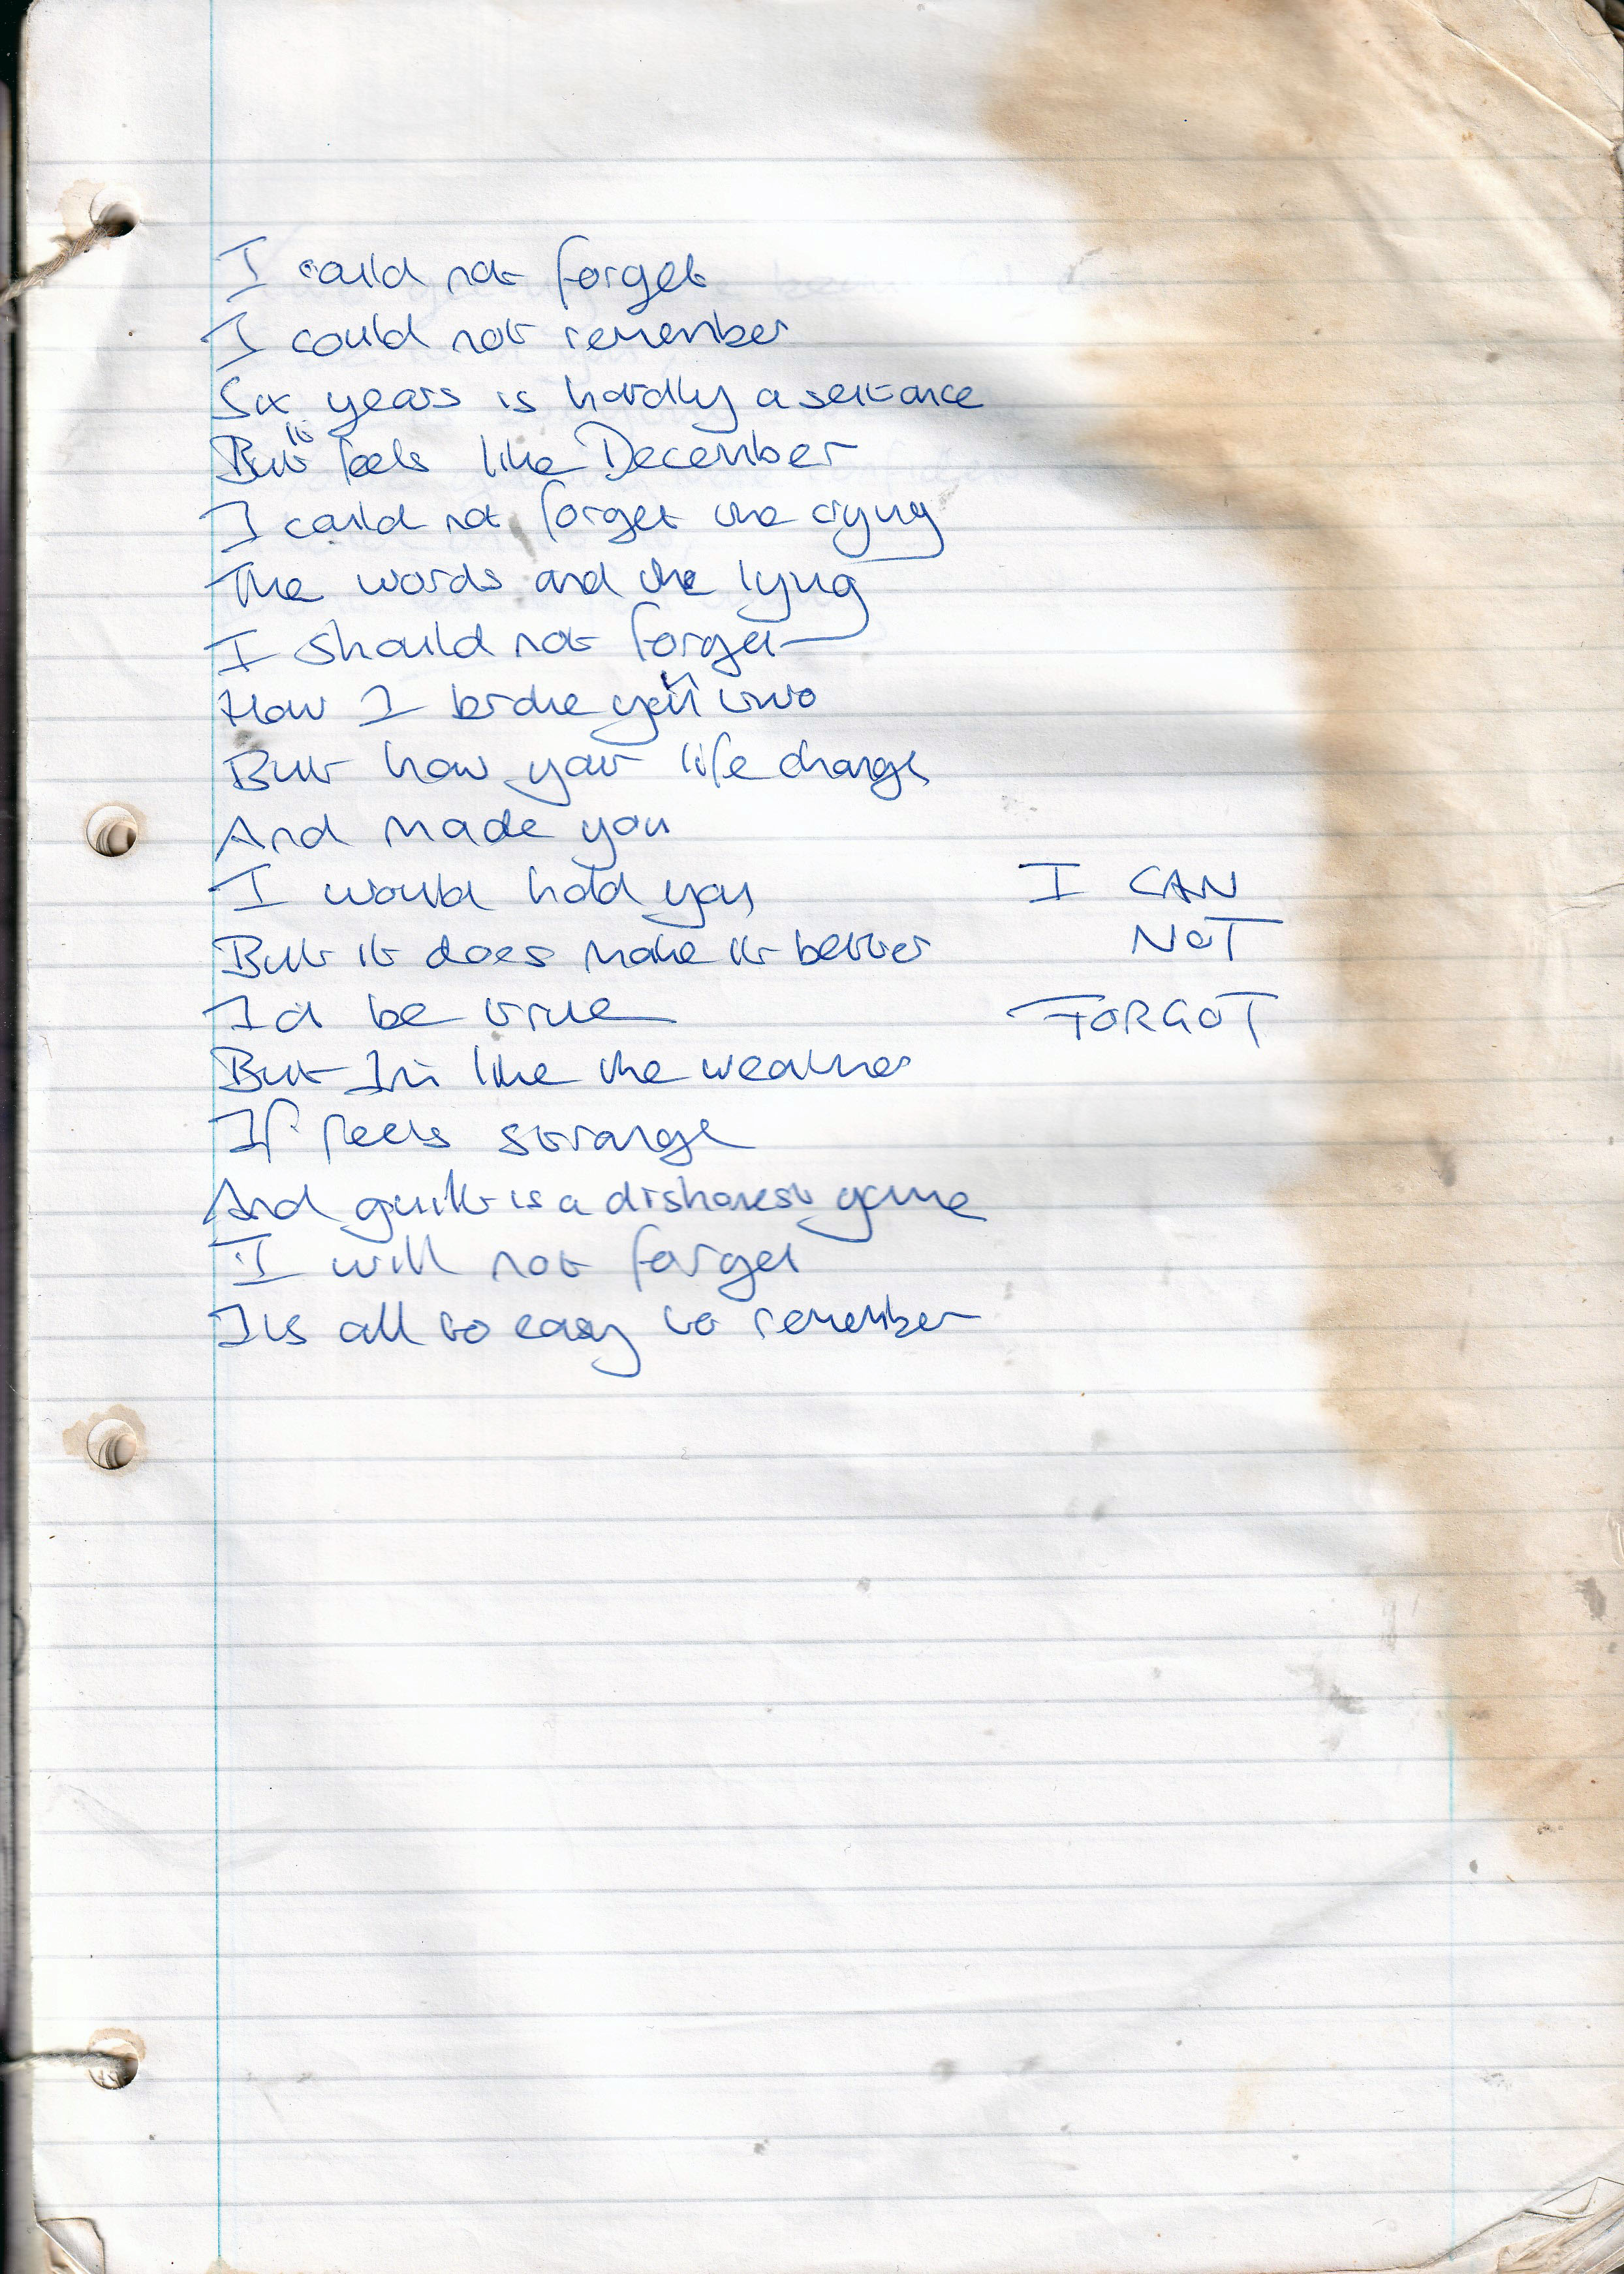 I could not forget
I could not remember
Six years is hardly a sentance
But it feels like December
I could not forget the crying
The words and the lying
I should not forget
How I broke you in two
But how your life changes
And made you
I would hold you
But it does make it better
Id be true
But Im like the weather
If feels strange
And guilt is a dishonest game
I will not forget
Its all to easy to remember
I CAN
NOT
FORGOT